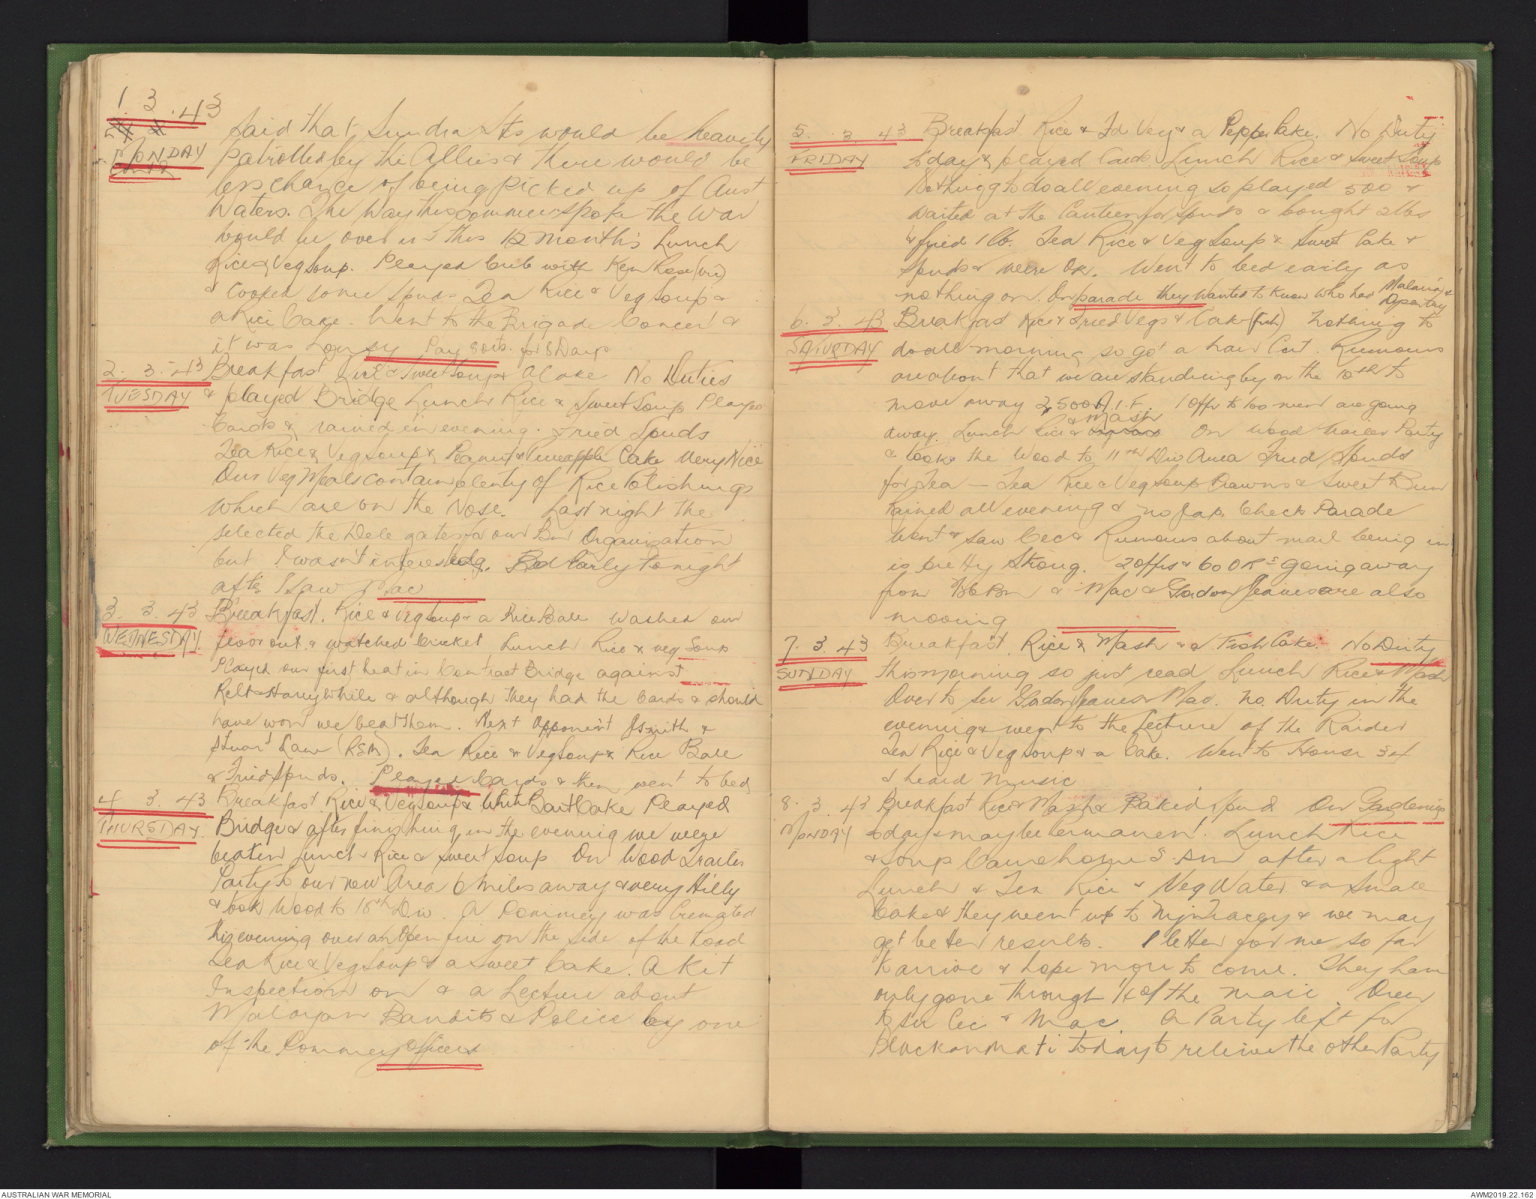 1. 3. 43
MONDAY
said that Sundra Sts would be heavily
patrolled by the Allies & there would be
less chance of being picked up of Aust
Waters. The way this Commer spoke the War
would be over in this 12 months Lunch
Rice & Veg Soup. Played Crib with Ken Rose (Vic)
& Cooked some Spuds Tea Rice & Veg Soup &
a Rice Cake. Went to the Brigade Concer &
it was Lousy Pay 90cts. for 8 Days
2. 3. 43 Breakfast Rice & Sweet Soup & a Cake No Duties
TUESDAY & played Bridge Lunch Rice & Sweet Soup Played
Cards & rained in evening. Fried Spuds
Tea Rice & Veg Soup & Peanut & Pineapple Cake Very Nice
Our Veg Meals contain plenty of Rice Polishings
which are on the Nose. Last night the
selected the Delegates for our Bn Organisation
but I wasn't interested. Bed Early tonight
after I saw Mac
3. 3. 43 Breakfast. Rice & Veg Soup & a Rice Bale Washed our
WEDNESDAY floor out & watched Cricket Lunch Rice & Veg Soup
Played our first heat in Contract Bridge against
Relt & Harry While & although they had the Cards & should
have won we beat them. Next Opponent J Smith &
Stuart Law (RSM). Tea Rice & Veg Soup & Rice Bale
& Fried Spuds. Played Cards & then went to bed
4. 3. 43 Breakfast Rice & Veg Soup & White Bait Cake Played
THURSDAY. Bridge & after finishing in the evening we were
beaten Lunch Rice & Sweet Soup On Wood Trailer
Party to our new Area 6 miles away & very Hilly
& took Wood to 18th Div. A Pommey was Cremated
this evening over an Open fire on the side of the Road
Tea Rice & Veg Soup & a Sweet Cake. A Kit
Inspection on & a Lecture about
Malayan Bandits & Police by one
of the Pommey Officers
5. 3. 43 Breakfast Rice & Fd Veg & a Pepper Cake. No Duty
FRIDAY today & played Cards Lunch Rice & Sweet Soup
Nothing to do all evening so played 500 &
waited at the Canteen for Spuds & bought 2 lbs
& fried 1 lb. Tea Rice & Veg Soup & Sweet Cake &
Spuds & were OK. Went to bed early as
nothing on. On parade they wanted to know who had Malaria &
Dysentary
6. 3. 43 Breakfast Rice & Fried Vegs & Cake (fish) Nothing to
SATURDAY do all morning so got a hair Cut. Rumours
are about that we are standing by on the 10th to
move away 2,500 A.I.F. 1 Offr to 100 men are going
away. Lunch Rice & Mash On Wood Trailer Party
& took the Wood to 11th Div Area Fried Spuds
for Tea — Tea Rice & Veg Soup Prawns & Sweet Bun
rained all evening & no Jap Check Parade
Went & saw Cec & Rumours about mail being in
is pretty Strong. 2 Offrs & 60 ORs going away
from 2/26 Bn & Mac & Gordon Jeanes are also
moving
7. 3. 43 Breakfast Rice & Mash & a Fish Cake No Duty
SUNDAY this morning so just read, Lunch Rice & Mash
Over to see Gordon Jeanes & Mac. No Duty in the
evening & went to the Lecture of the Raider
Tea Rice & Veg Soup & a Cake. Went to House 34
& heard Music
8. 3. 43 Breakfast Rice & Mash & Baked Spud On Gardening
MONDAY today & maybe Permanent. Lunch Rice
& Soup Came home 3.30 after a light
Lunch & Tea Rice & Veg Water & a Small
Cake & they went up to Mjr Tracey & we may
get better results. 1 letter for me so far
to arrive & hope more to come. They have
only gone through ¼ of the mail. Over
to see Cec & Mac. A Party left for
Blackanmati today to relieve the other Party
AUSTRALIAN WAR MEMORIAL
AWM2019.22.162